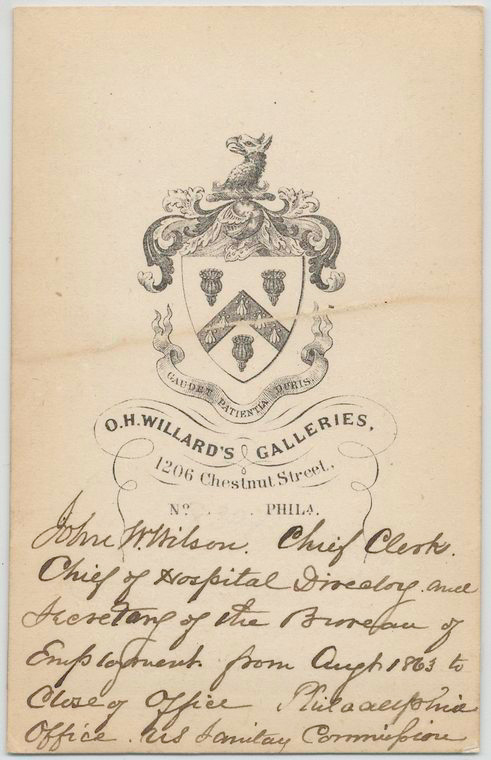 GAUDET PATIENTIA DURIS.
O.H. WILLARD'S GALLERIES,
1206 Chestnut Street,
No. PHILA.
John W. Wilson. Chief Clerk.
Chief of Hospital Directory and
Secretary of the Bureau of
Employment from Augt. 1863 to
Close of Office Philadelphia
Office. US Sanitary Commission